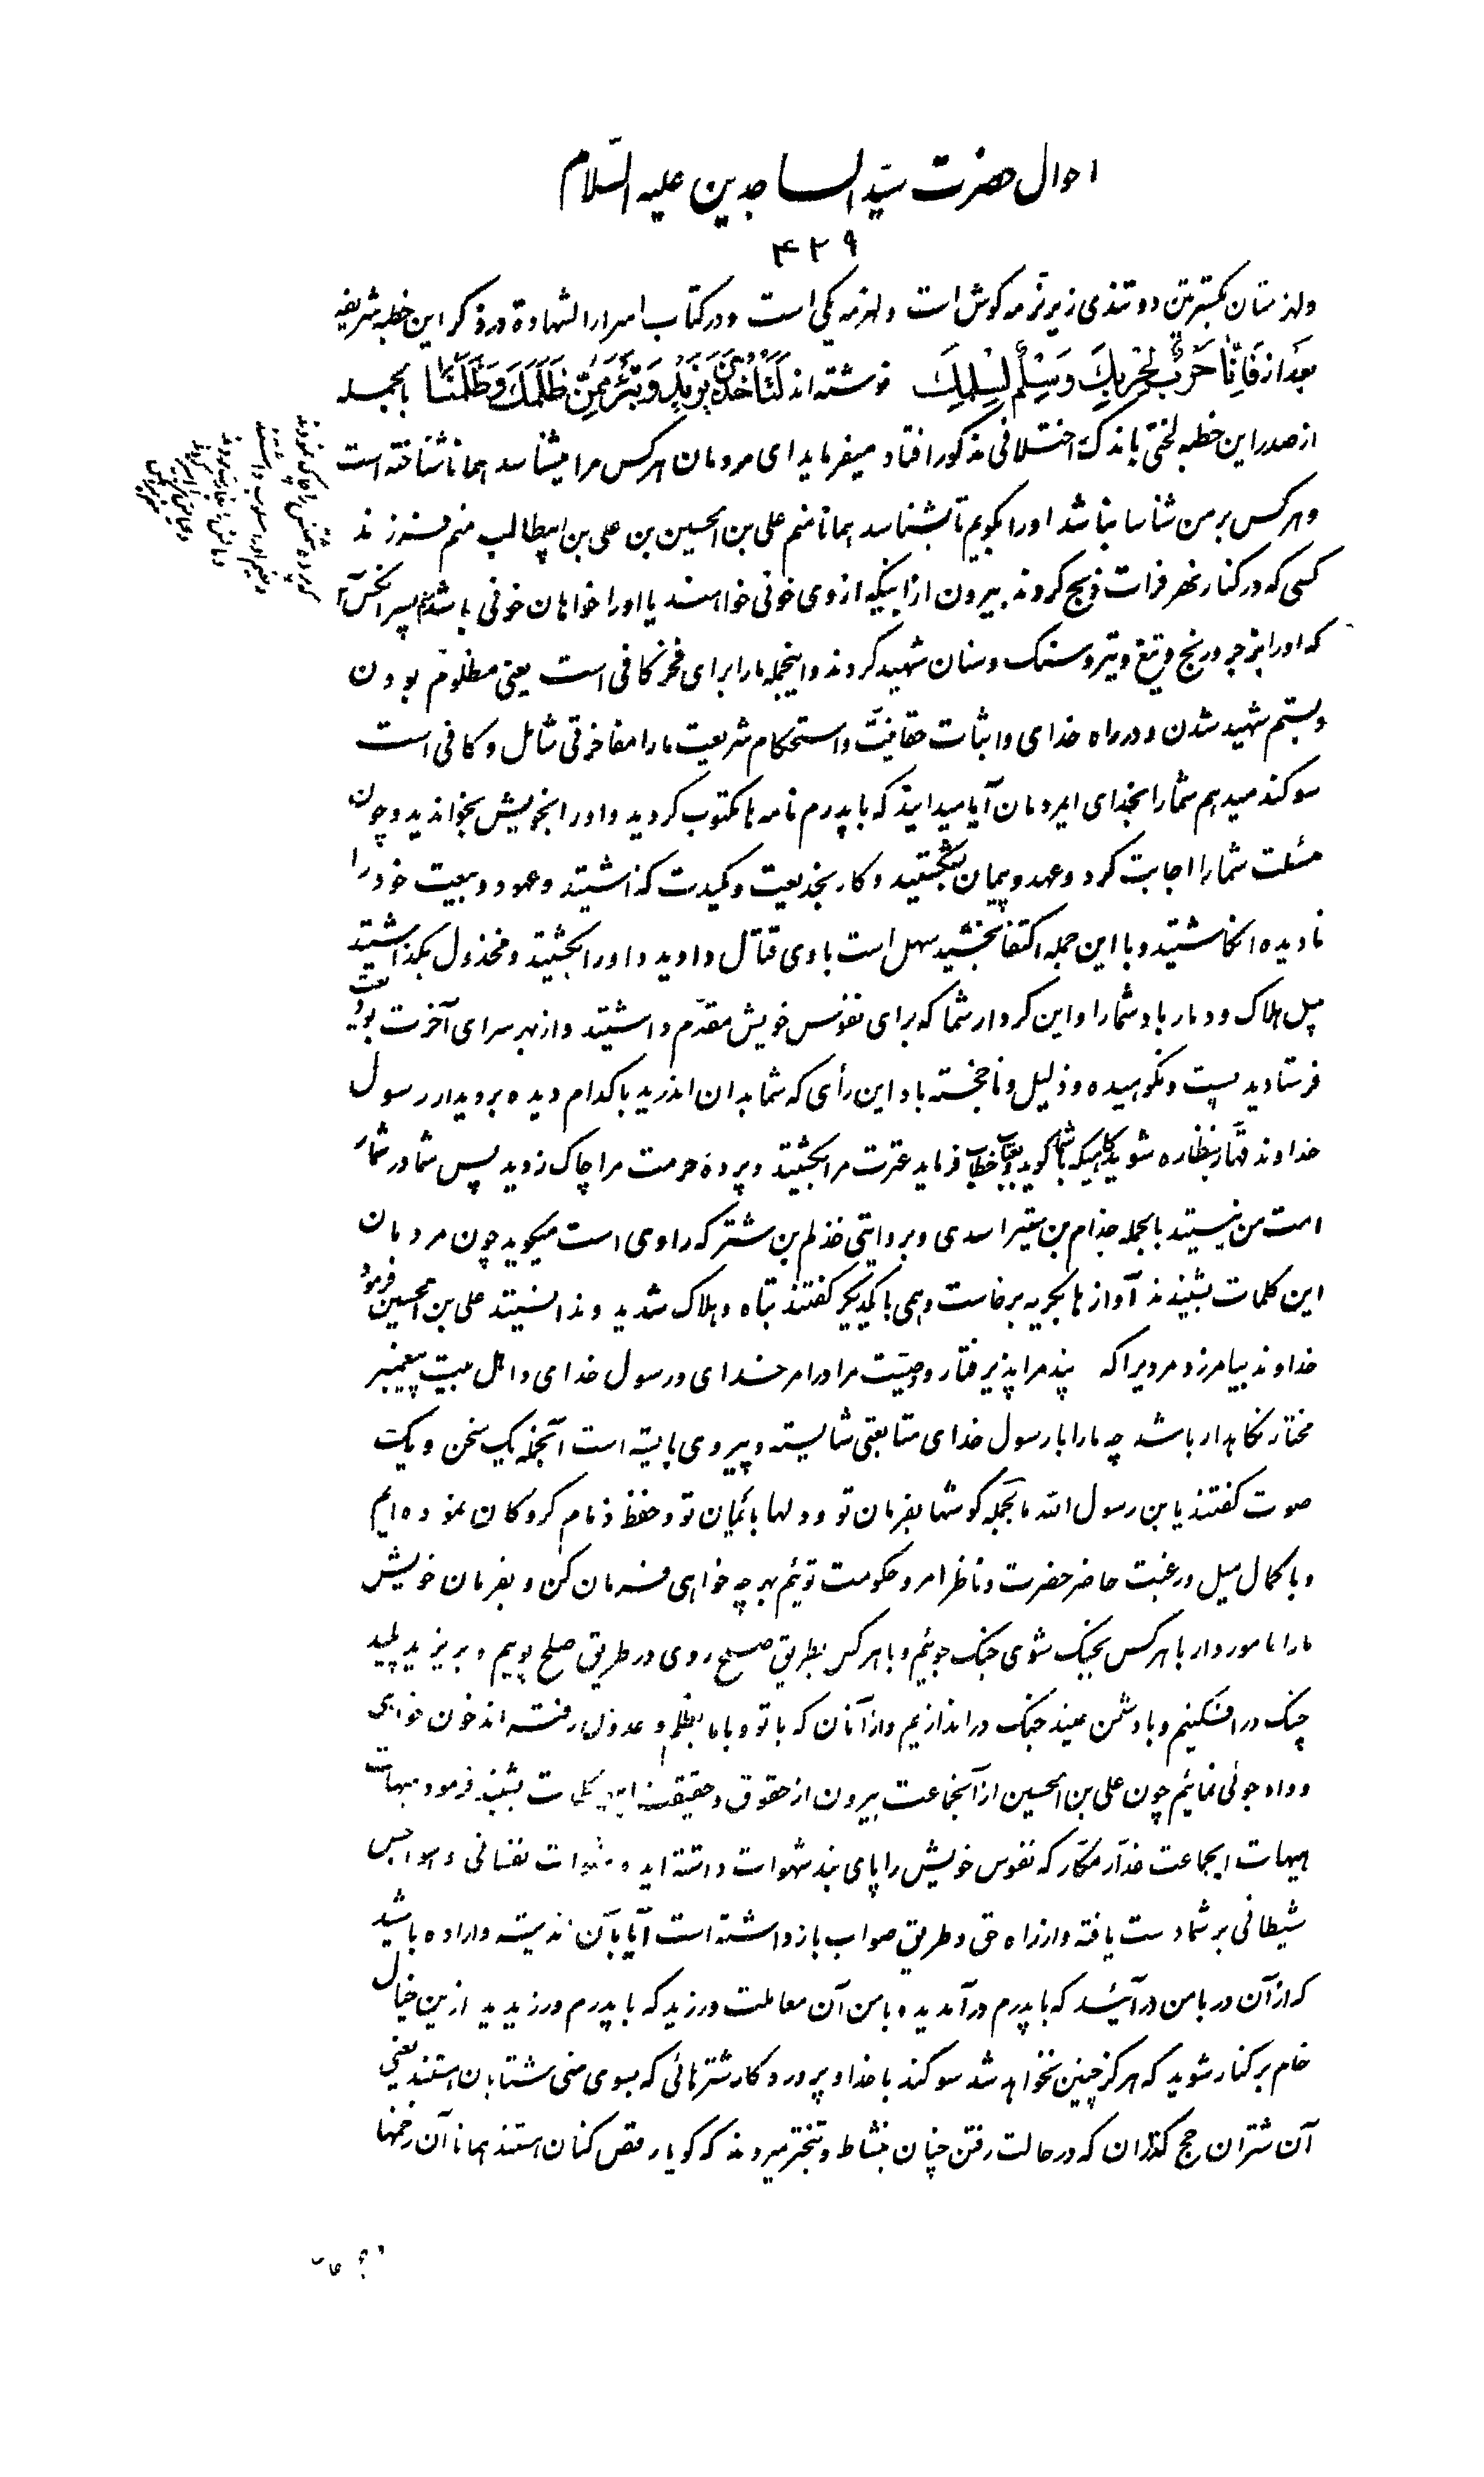 احوال حضرت سیّد الساجدین علیه السّلام
۴۲۹
ولهزمتان بکسرتین دو تندی زیر نرمه کوش است ولهزمه یکی است و در کتاب اسرار الشهادة در ذکر این خطبه شریفه
بعد از فَاِنّٰا حَرْبٌ لِحَرْبِكَ وَسِلْمٌ لِسِلْمِكَ نوشته اند لَنَأْخُذَنَّ یَزیدَ وَنَبْرَءُ مِمَّنْ ظَلَمَكَ وَظَلَمَنٰا بالجمله
از صدر این خطبه لختی باندک اختلافی مذکور افتاد میفرماید ای مردمان هرکس مرا میشناسد همانا شناخته است
و هرکس بر من شناسا نباشد او را بگویم تا بشناسد همانا منم علی بن الحسین بن علی بن ابیطالب منم فرزند
کسی که در کنار نهر فرات ذبح کردند بیرون از اینکه از وی خونی خواهند یا او را خواهان خونی باشند منم پسر آنکس
که او را بزجر و رنج و تیغ و تیر و سنک و سنان شهید کردند و اینجمله ما را برای فخر کافی است یعنی مظلوم بودن
و بستم شهید شدن و در راه خدای و اثبات حقانیّت و استحکام شریعت ما را مفاخرتی شامل و کافی است
سوکند میدهم شما را بخدای ایمردمان آیا میدانید که با پدرم نامه ها مکتوب کردید و او را بخویش بخواندید و چون
مسئلت شما را اجابت کرد و عهد و پیمان بشکستید و کار بخدیعت و کیدت کذاشتید و عهود و بیعت خود را
نادیده انکاشتید و با این جمله اکتفا نجشید سهل است با وی قتال دادید و او را بکشتید و مخذول بکذاشتید
پس هلاک و دمار باد شما را و این کردار شما که برای نفوس خویش مقدّم داشتید و از بهر سرای آخرت بودیعت
فرستادید پست و نکوهیده و ذلیل و ناخجسته باد این رأی که شما بدان اندرید با کدام دیده بر دیدار رسول
خداوند قهّار بنظاره شوید کاهیکه با شما کوید و بعتاب خطاب فرماید عترت مرا بکشتید و پردهٔ حرمت مرا چاک زدید پس شما در شمار
امت من نیستید بالجمله جذام بن ستیر اسدی و بروایتی خذلم بن شتر که راوی است میکوید چون مردمان
این کلمات بشنیدند آوازها بکریه برخاست و همی با یکدیکر کفتند تباه و هلاک شدید و ندانستید علی بن الحسین فرمود
خداوند بیامرزد مردیرا که پند مرا پذیرفتار و وصیّت مرا در امر خدای و رسول خدای و اهل بیت پیغمبر
مختار نکاهدار باشد چه ما را با رسول خدای متابعتی شایسته و پیروی بایسته است آنجمله یک سخن و یک
صوت کفتند یا بن رسول الله ما بجمله کوشها بفرمان تو و دلها بأیمان تو و حفظ ذمام کروکان نموده ایم
و با کمال میل و رغبت حاضر حضرت و ناظر امر و حکومت توئیم بهرچه خواهی فرمان کن و بفرمان خویش
ما را مامور دار با هرکس بجنک شوی جنک جوئیم و با هرکس بطریق صلح روی در طریق صلح پوییم و بر یزید پلید
چنک در افکنیم و با دشمن عنید جنک در اندازیم و از آنان که با تو و با ما بظلم و عدول رفته اند خون خواهی
و داد جوئی نمائیم چون علی بن الحسین از آنجماعت بیرون از حقوق و حقیقت این کلمات بشنید فرمود هیهات
هیهات ایجماعت غدّار مکّار که نفوس خویش را پای بند شهوات داشته اید و شهوات نفسانی و هواجس
شیطانی بر شما دست یافته و از راه حق و طریق صواب باز داشته است آیا بآن اندیشه و اراده باشید
که از آن در با من در آئید که با پدرم در آمدید و با من آن معاملت ورزید که با پدرم ورزیدید ازین خیال
خام بر کنار شوید که هرکز چنین نخواهد شد سوکند با خداوند پروردکار شترهائی که بسوی منی شتابان هستند یعنی
آن شتران حج کذاران که در حالت رفتن چنان بنشاط و تبختر میروند که کویا رقص کنان هستند همانا آن زخمها